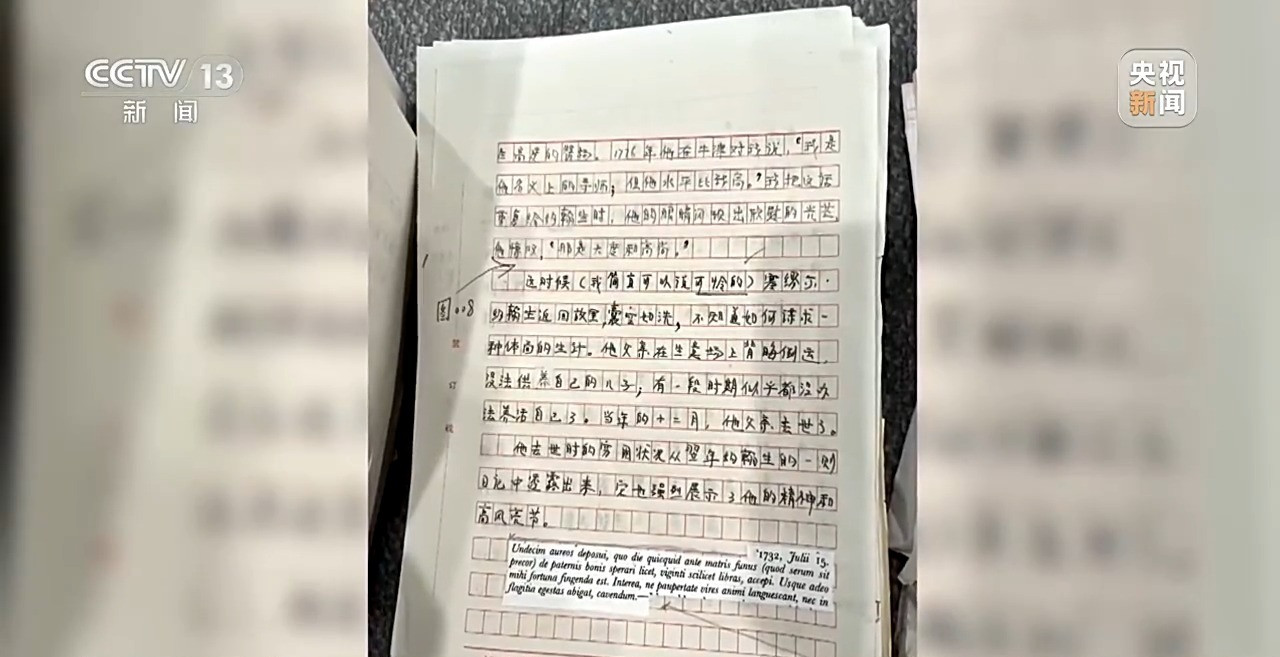 CCTV 13
新闻
央视
新闻
的警极。1776年他在牛津对我说,“我是
他名义上的导师;但他水平比我高。”我把这话
重复给约翰生时,他的眼睛闪现出欣慰的光芒,
他惊叹,“那是大度和高尚。”
这时候(我简直可以说可怜的)塞缪尔·
约翰生返回故里,囊空如洗,不知道如何谋求一
种体面的生计。他父亲在生意场上背时倒运,
没法供养自己的儿子;有一段时期似乎都没办
法养活自己了。当年的十二月,他父亲去世了。
他去世时的穷困状况从翌年约翰生的一则
日记中透露出来,它也强烈展示了他的精神和
高风亮节。
图008
'1732, Julii 15.
Undecim aureos deposui, quo die quicquid ante matris funus (quod serum sit
precor) de paternis bonis sperari licet, viginti scilicet libras, accepi. Usque adeo
mihi fortuna fingenda est. Interea, ne paupertate vires animi languescant, nec in
flagitia egestas abigat, cavendum.—